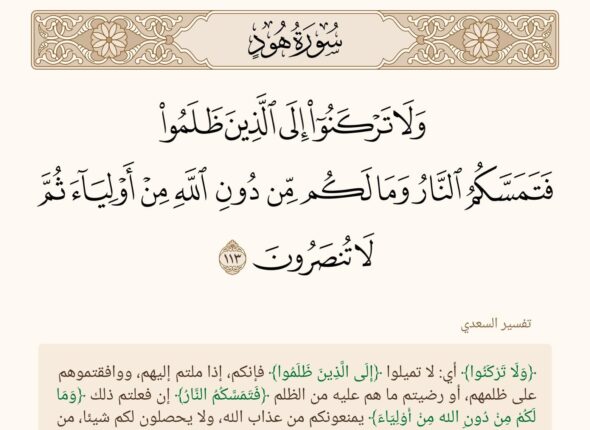 سُورَةُ هُودٍ
وَلَا تَرْكَنُوٓا۟ إِلَى ٱلَّذِينَ ظَلَمُوا۟
فَتَمَسَّكُمُ ٱلنَّارُ وَمَا لَكُم مِّن دُونِ ٱللَّهِ مِنْ أَوْلِيَآءَ ثُمَّ
لَا تُنصَرُونَ ١١٣
تفسير السعدي
﴿وَلَا تَرْكَنُوا﴾ أي: لا تميلوا ﴿إِلَى الَّذِينَ ظَلَمُوا﴾ فإنكم، إذا ملتم إليهم، ووافقتموهم
على ظلمهم، أو رضيتم ما هم عليه من الظلم ﴿فَتَمَسَّكُمُ النَّارُ﴾ إن فعلتم ذلك ﴿وَمَا
لَكُمْ مِنْ دُونِ الله مِنْ أَوْلِيَاءَ﴾ يمنعونكم من عذاب الله، ولا يحصلون لكم شيئا، من